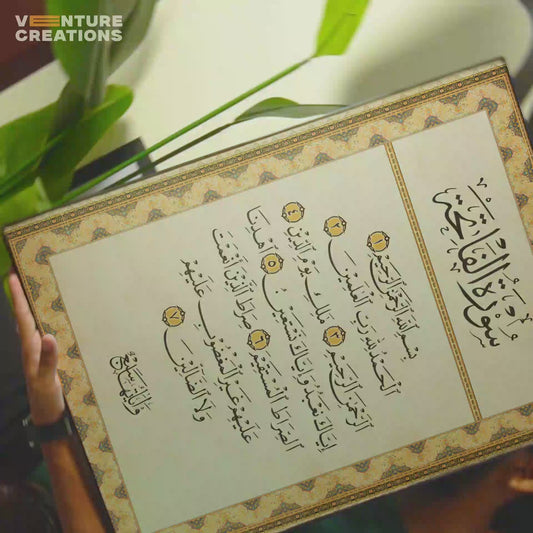 VENTURE
CREATIONS
سُورَةُ الْفَاتِحَةِ
بِسْمِ اللَّهِ الرَّحْمَٰنِ الرَّحِيمِ ١
الْحَمْدُ لِلَّهِ رَبِّ الْعَٰلَمِينَ ٢
الرَّحْمَٰنِ الرَّحِيمِ ٣ مَٰلِكِ يَوْمِ الدِّينِ ٤
إِيَّاكَ نَعْبُدُ وَإِيَّاكَ نَسْتَعِينُ ٥ اهْدِنَا
الصِّرَاطَ الْمُسْتَقِيمَ ٦ صِرَاطَ الَّذِينَ أَنْعَمْتَ
عَلَيْهِمْ غَيْرِ الْمَغْضُوبِ عَلَيْهِمْ
وَلَا الضَّالِّينَ ٧
وآياتها سبع